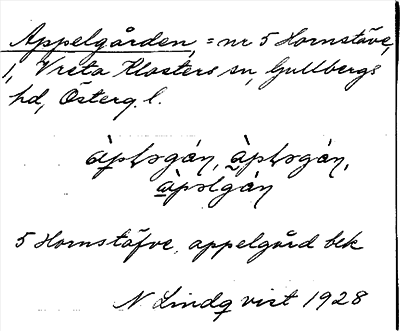 Appelgården, = nr 5 Hornstäve,
i, Vreta Klosters sn, Gullbergs
hd, Österg. l.
àpləgán, àpləgán,
àpəlgán
5 Hornstäfve, appelgård bek
N Lindqvist 1928